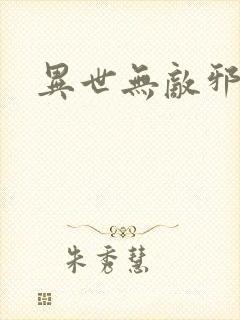 異世無敵邪
朱秀慧